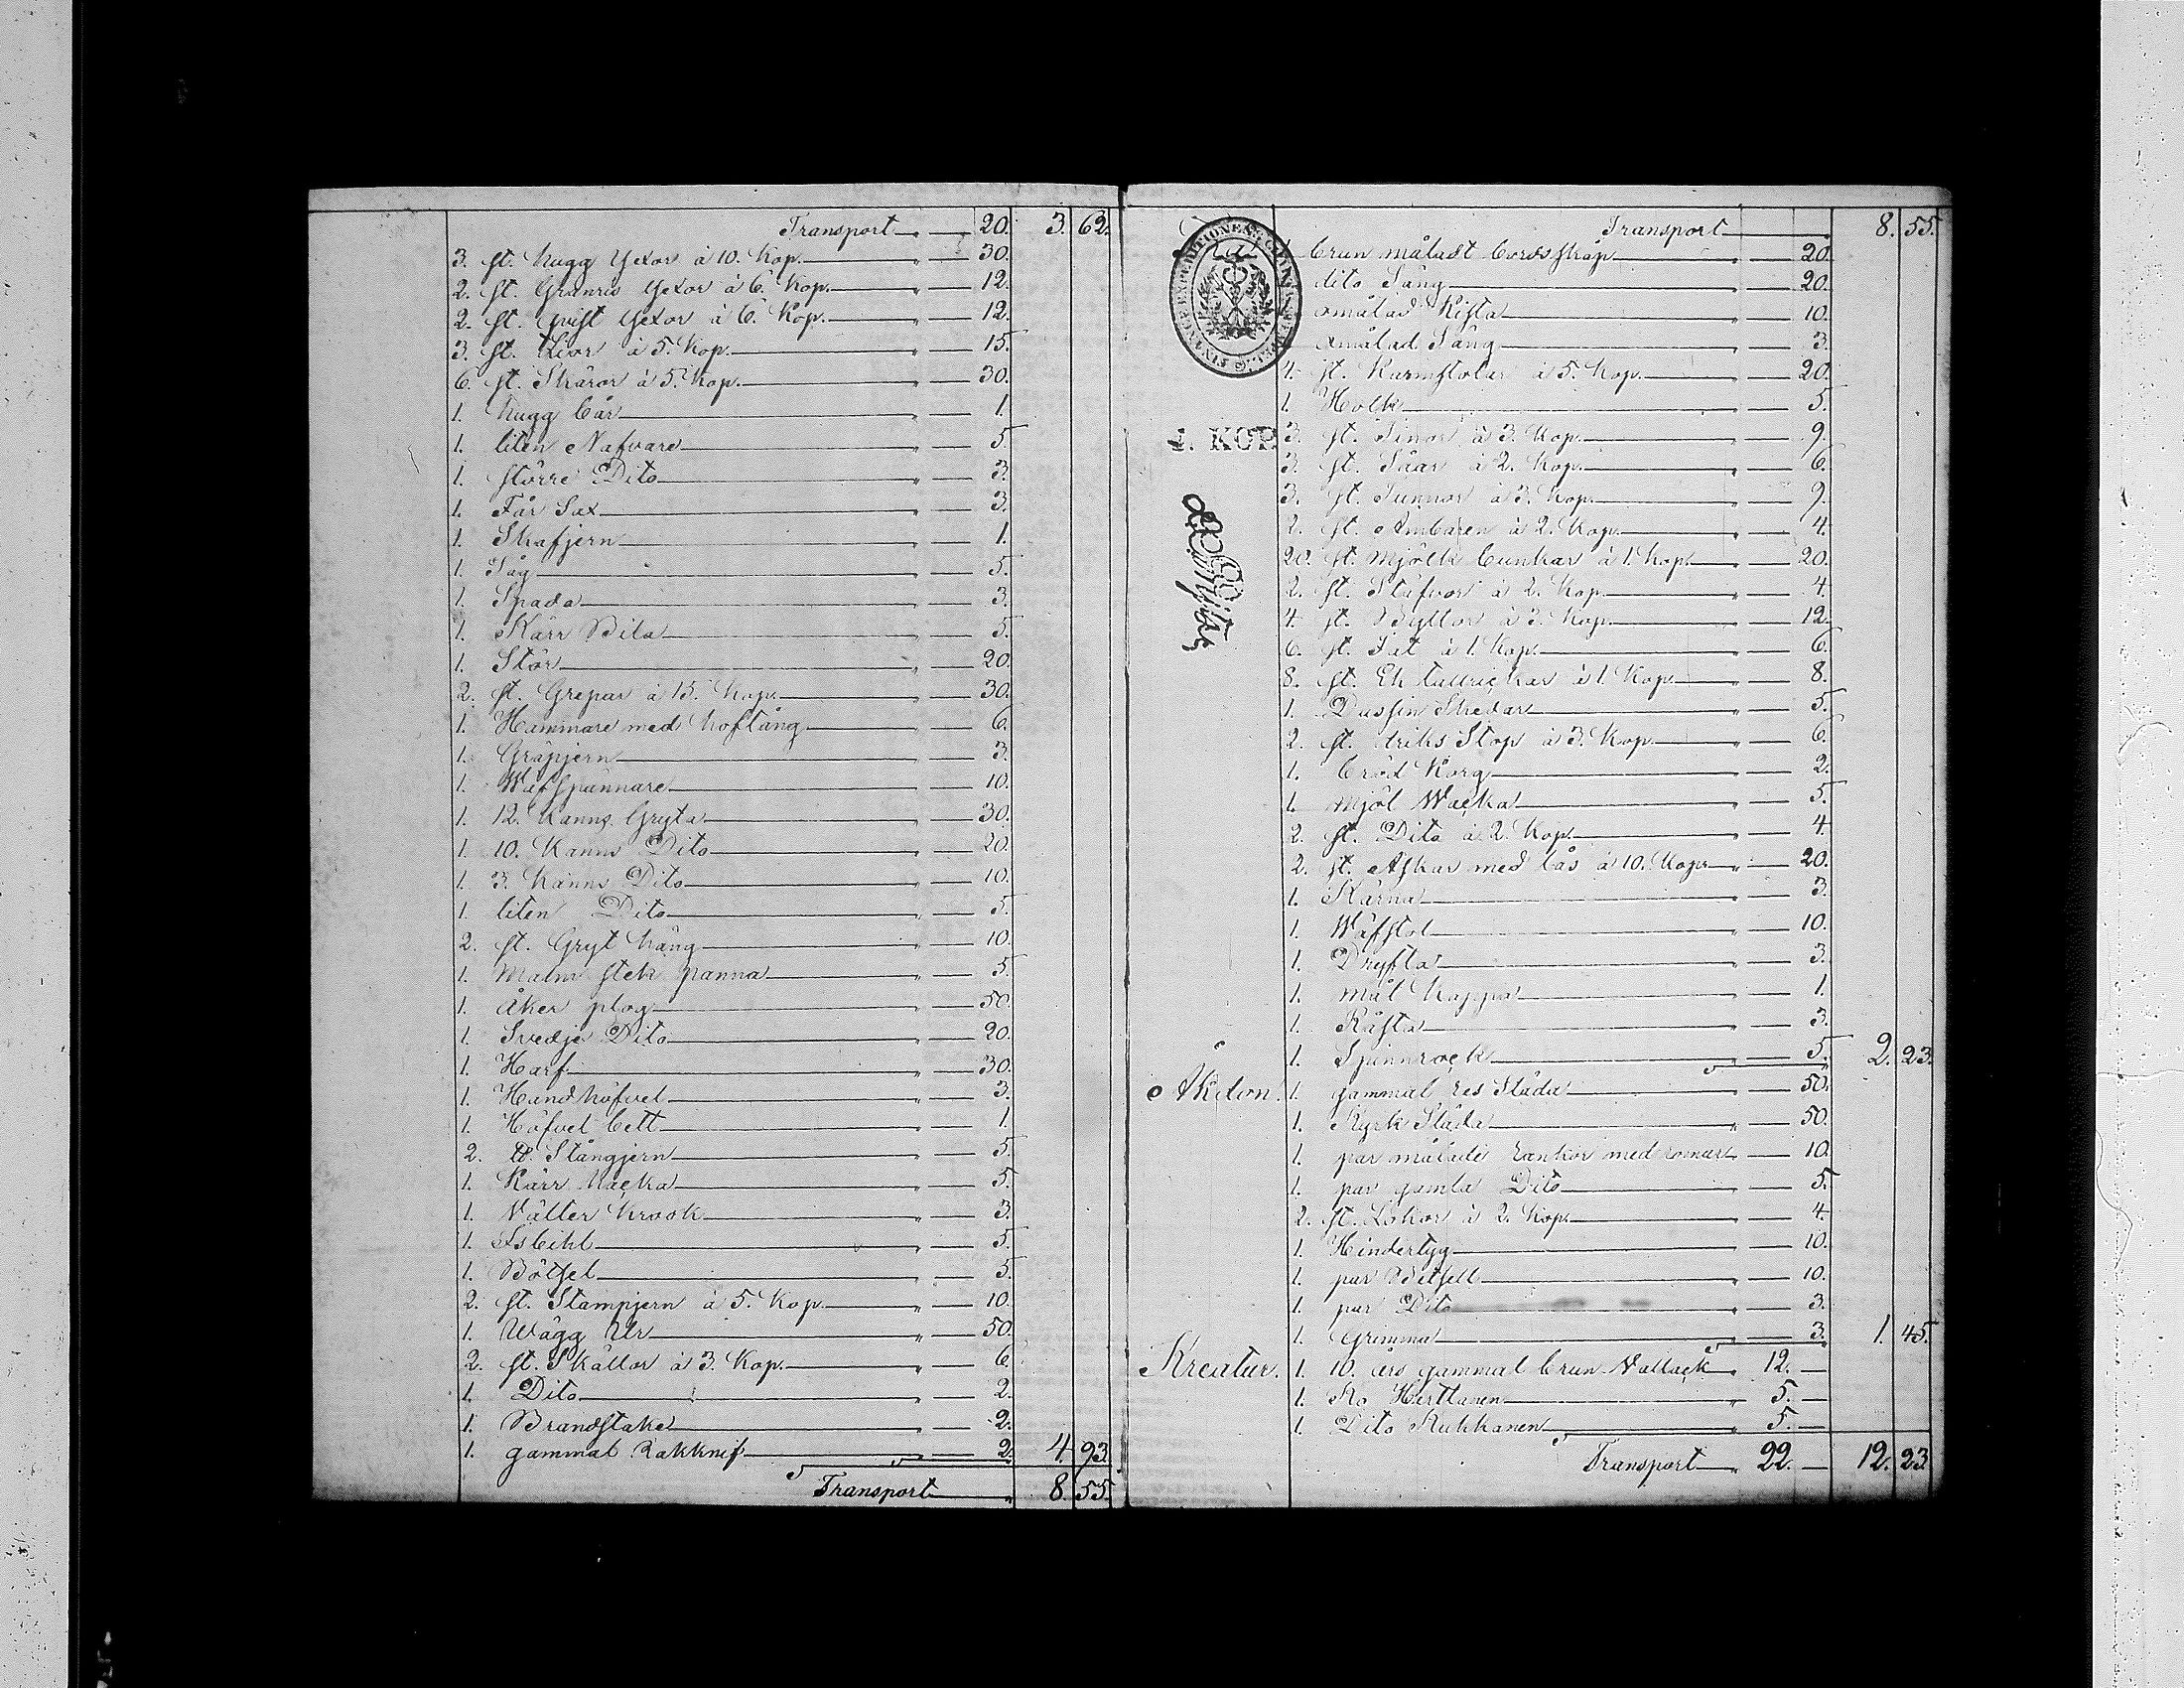 Transport 20. 3. 62.
3. st. hugg Yxor à 10. Kop. 30.
2. st. Granris Yxor à 6. Kop. 12.
2. st. qvist Yxor à 6. Kop. 12.
3. st. Liar à 5. Kop. 15.
6. st. Skäror à 5. Kop. 30.
1. hugg bår 1.
1. liten Nafvare 5.
1. större Dito 3.
1. Får Sax 3.
1. Skafjern 1.
1. Såg 5.
1. Spada 3.
1. Kärr Bila 5.
1. Stör 20.
2. st. Grepar à 15. Kop. 30.
1. Hammare med hoftång 6.
1. Gräpjern 3.
1. Wäfspännare 10.
1. 12. Kanns Gryta 30.
1. 10. Kanns Dito 20.
1. 3. Kanns Dito 10.
1. liten Dito 5.
2. st. Gryt häng 10.
1. Malm stek panna 5.
1. Åker plog 50.
1. Svedje Dito 20.
1. Harf 30.
1. Handhöfvel 3.
1. Höfvel bett 1.
2. ℔. Stångjern 5.
1. Kärr hacka 5.
1. Nätter Krook 3.
1. Isbihl 5.
1. Bötsel 5.
2. st. Stampjern à 5. Kop. 10.
1. Wägg Ur 50.
2. st. Skällor à 3. Kop. 6.
1. Dito 2.
1. Brandstake 2.
1. gammal Rakknif 2. 4. 93.
Transport 8. 55.
Transport 8. 55.
brun måladt bordsskåp 20.
dito Säng 20.
omålad Kista 10.
omålad Säng 3.
4. st. Karmstolar à 5. Kop. 20.
1. Holk 5.
1. KOP.
3. st. Tinor à 3. Kop. 9.
3. st. Såar à 2. Kop. 6.
3. st. Tunnor à 3. Kop. 9.
2. st. Ämbaren à 2. Kop. 4.
20. st. Mjölk bunkar à 1. Kop. 20.
2. st. Stäfvor à 2. Kop. 4.
4. st. Byttor à 3. Kop. 12.
6. st. Fat à 1. Kop. 6.
8. st. Ek tallrickar à 1. Kop. 8.
1. Dussin Skedar 5.
2. st. driks Stop à 3. Kop. 6.
1. bröd Korg 2.
1. mjöl Wacka 5.
2. st. Dito à 2. Kop. 4.
2. st. Askar med lås à 10. Kop. 20.
1. Kärna 3.
1. Wäfstol 10.
1. Dryfta 3.
1. mål Kappa 1.
1. Räfsta 3.
1. Spinnrock 5. 2. 23.
Åkdon. 1. gammal res Släda 50.
1. Kyrk Släda 50.
1. par målade rankor med 10.
1. par gamla Dito 5.
2. st. Lokor à 2. Kop. 4.
1. Hindertyg 10.
1. par Betsell 10.
1. par Dito 3.
1. Grimma 3. 1. 45.
Kreatur. 1. 10. års gammal brun Vallack 12.
1. Ko Herttanen 5.
1. Dito Kukkanen 5.
Transport 22. 12. 23.